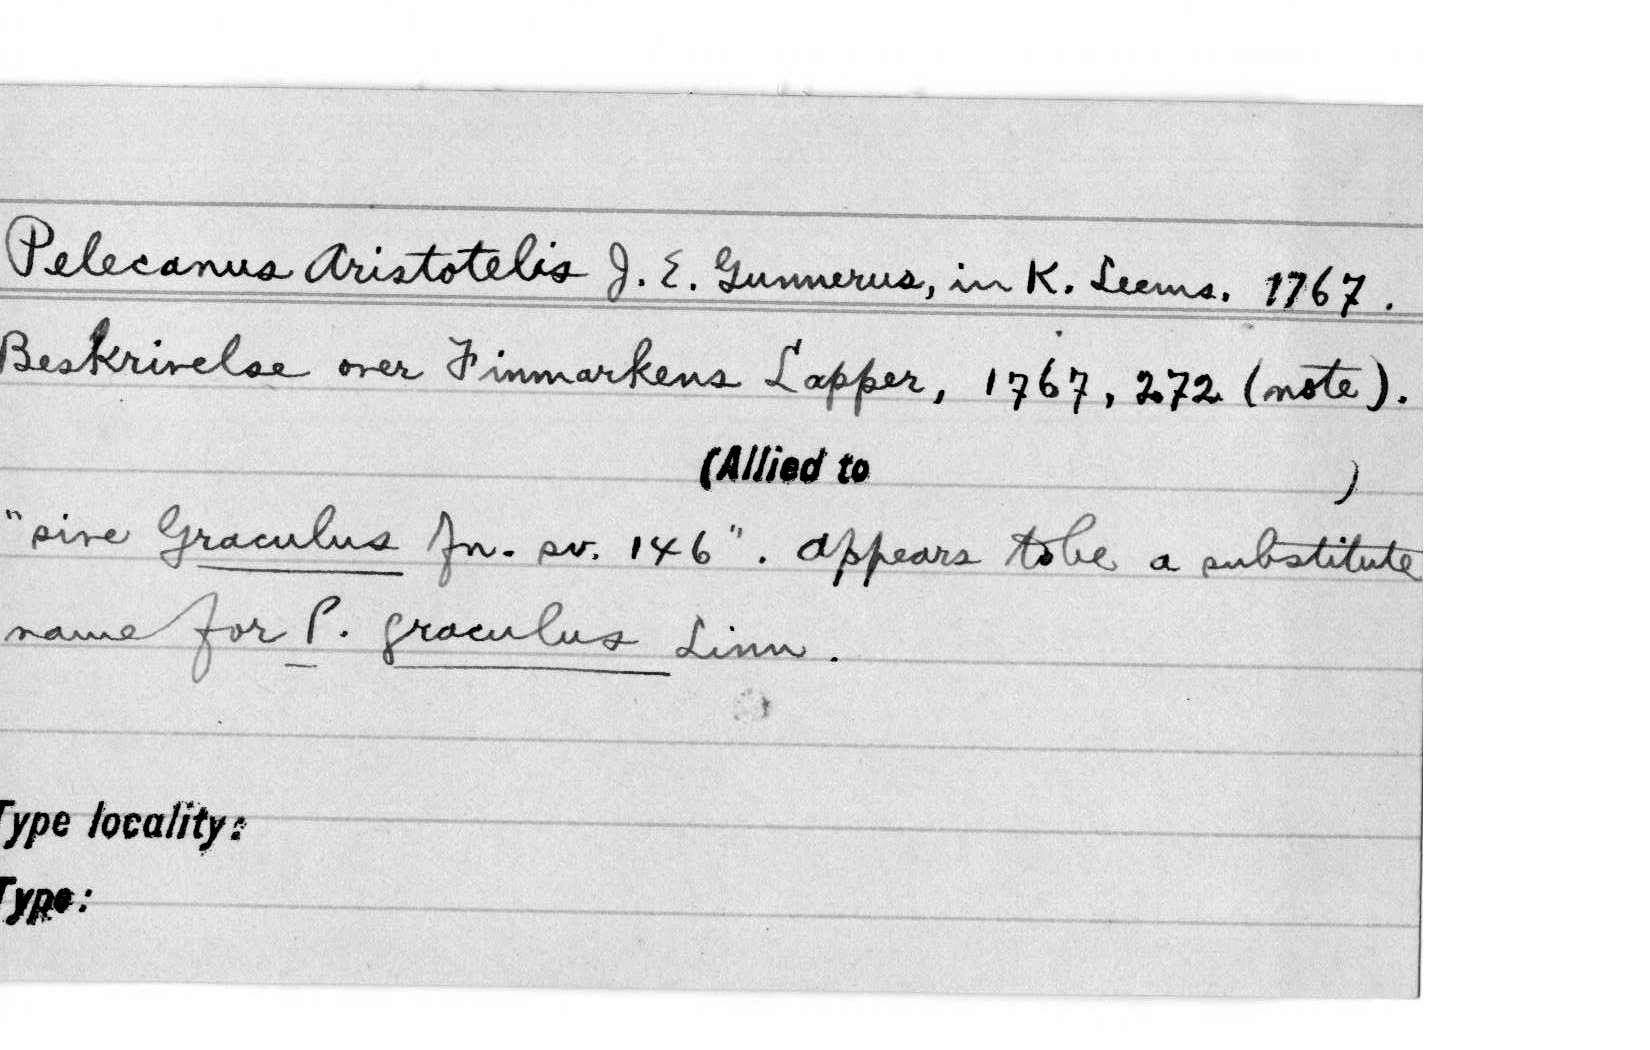 Pelecanus Aristotelis J. E. Gunnerus, in K. Leems. 1767.
Beskrivelse over Finmarkens Lapper, 1767, 272 (note).
(Allied to )
"sive Graculus fn. sv. 146". Appears to be a substitute
name for P. graculus Linn.
Type locality:
Type: